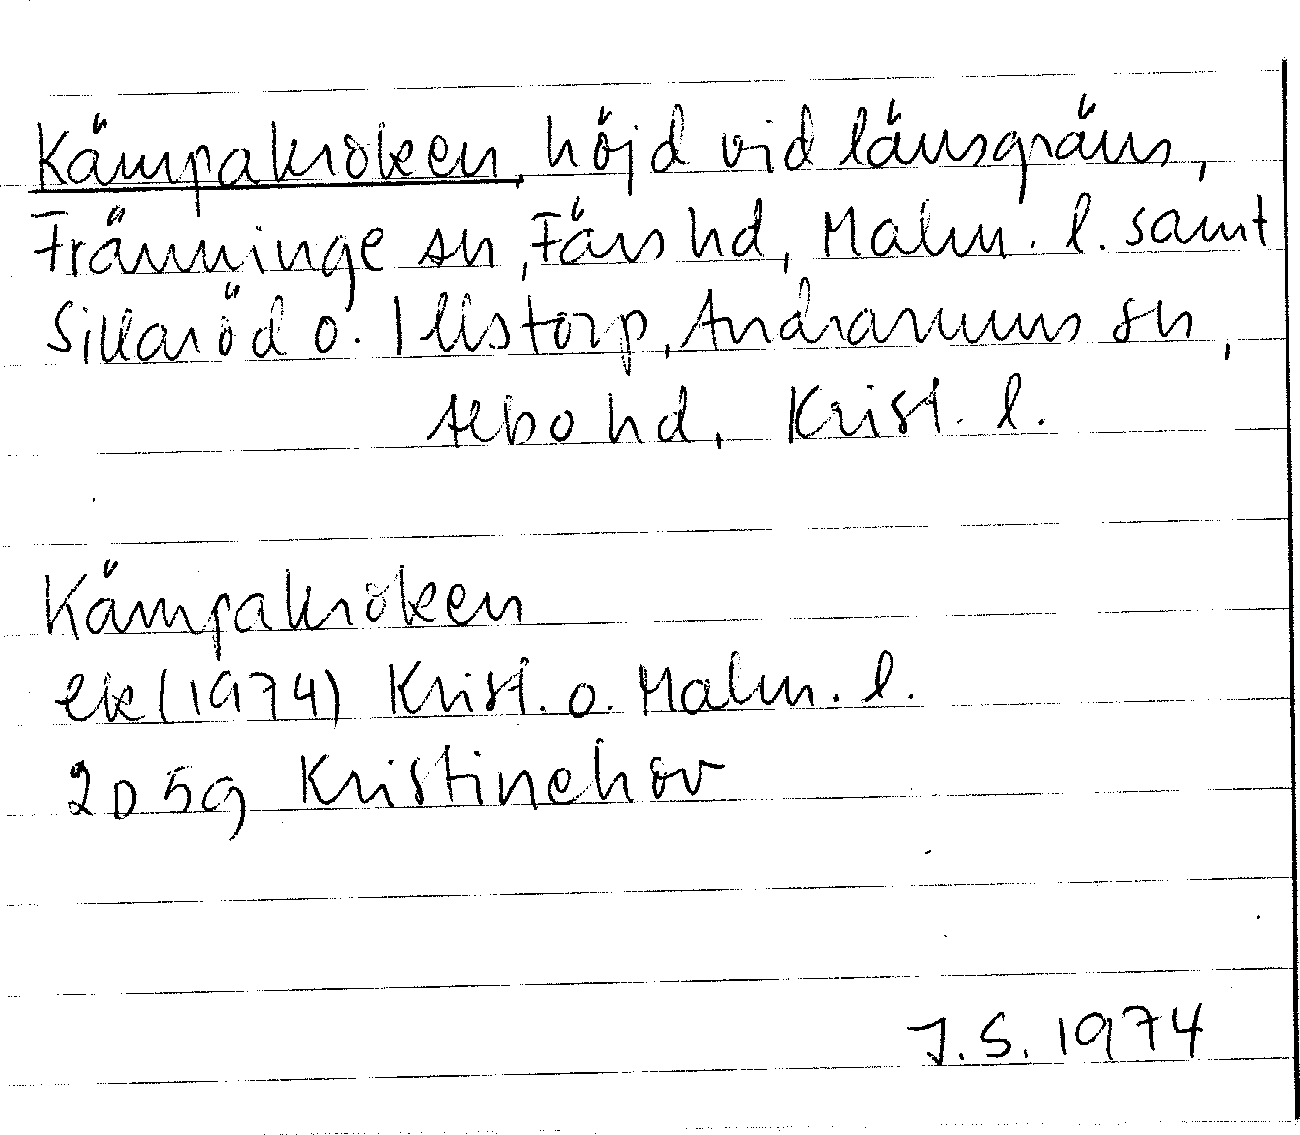 Kämpakroken, höjd vid länsgräns,
Fränninge sn, Färs hd, Malm. l. samt
Sillaröd o. Illstorp, Andrarums sn,
Albo hd, Krist. l.
Kämpakroken
ek (1974) Krist. o. Malm. l.
2D 5g Kristinehov
J.S. 1974